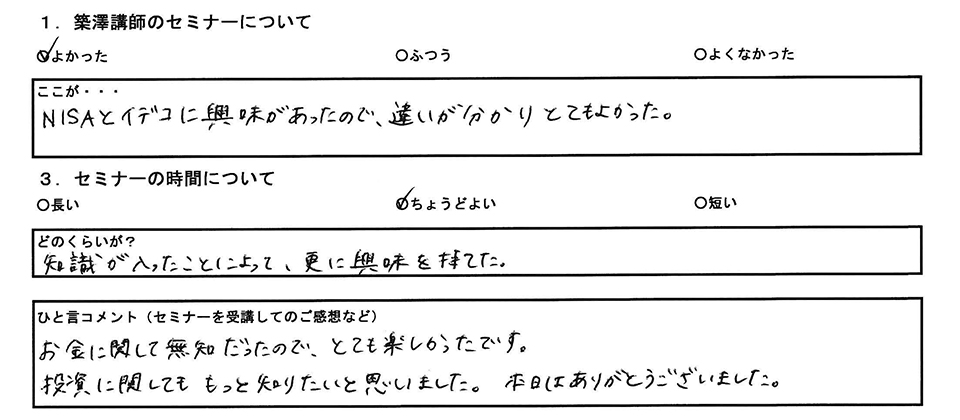 １．築澤講師のセミナーについて
○よかった ○ふつう ○よくなかった
ここが・・・
NISAとイデコに興味があったので、違いが分かりとてもよかった。
３．セミナーの時間について
○長い ○ちょうどよい ○短い
どのくらいが？
知識が入ったことによって、更に興味を持てた。
ひと言コメント（セミナーを受講してのご感想など）
お金に関して無知だったので、とても楽しかったです。
投資に関しても もっと知りたいと思いました。 本日はありがとうございました。